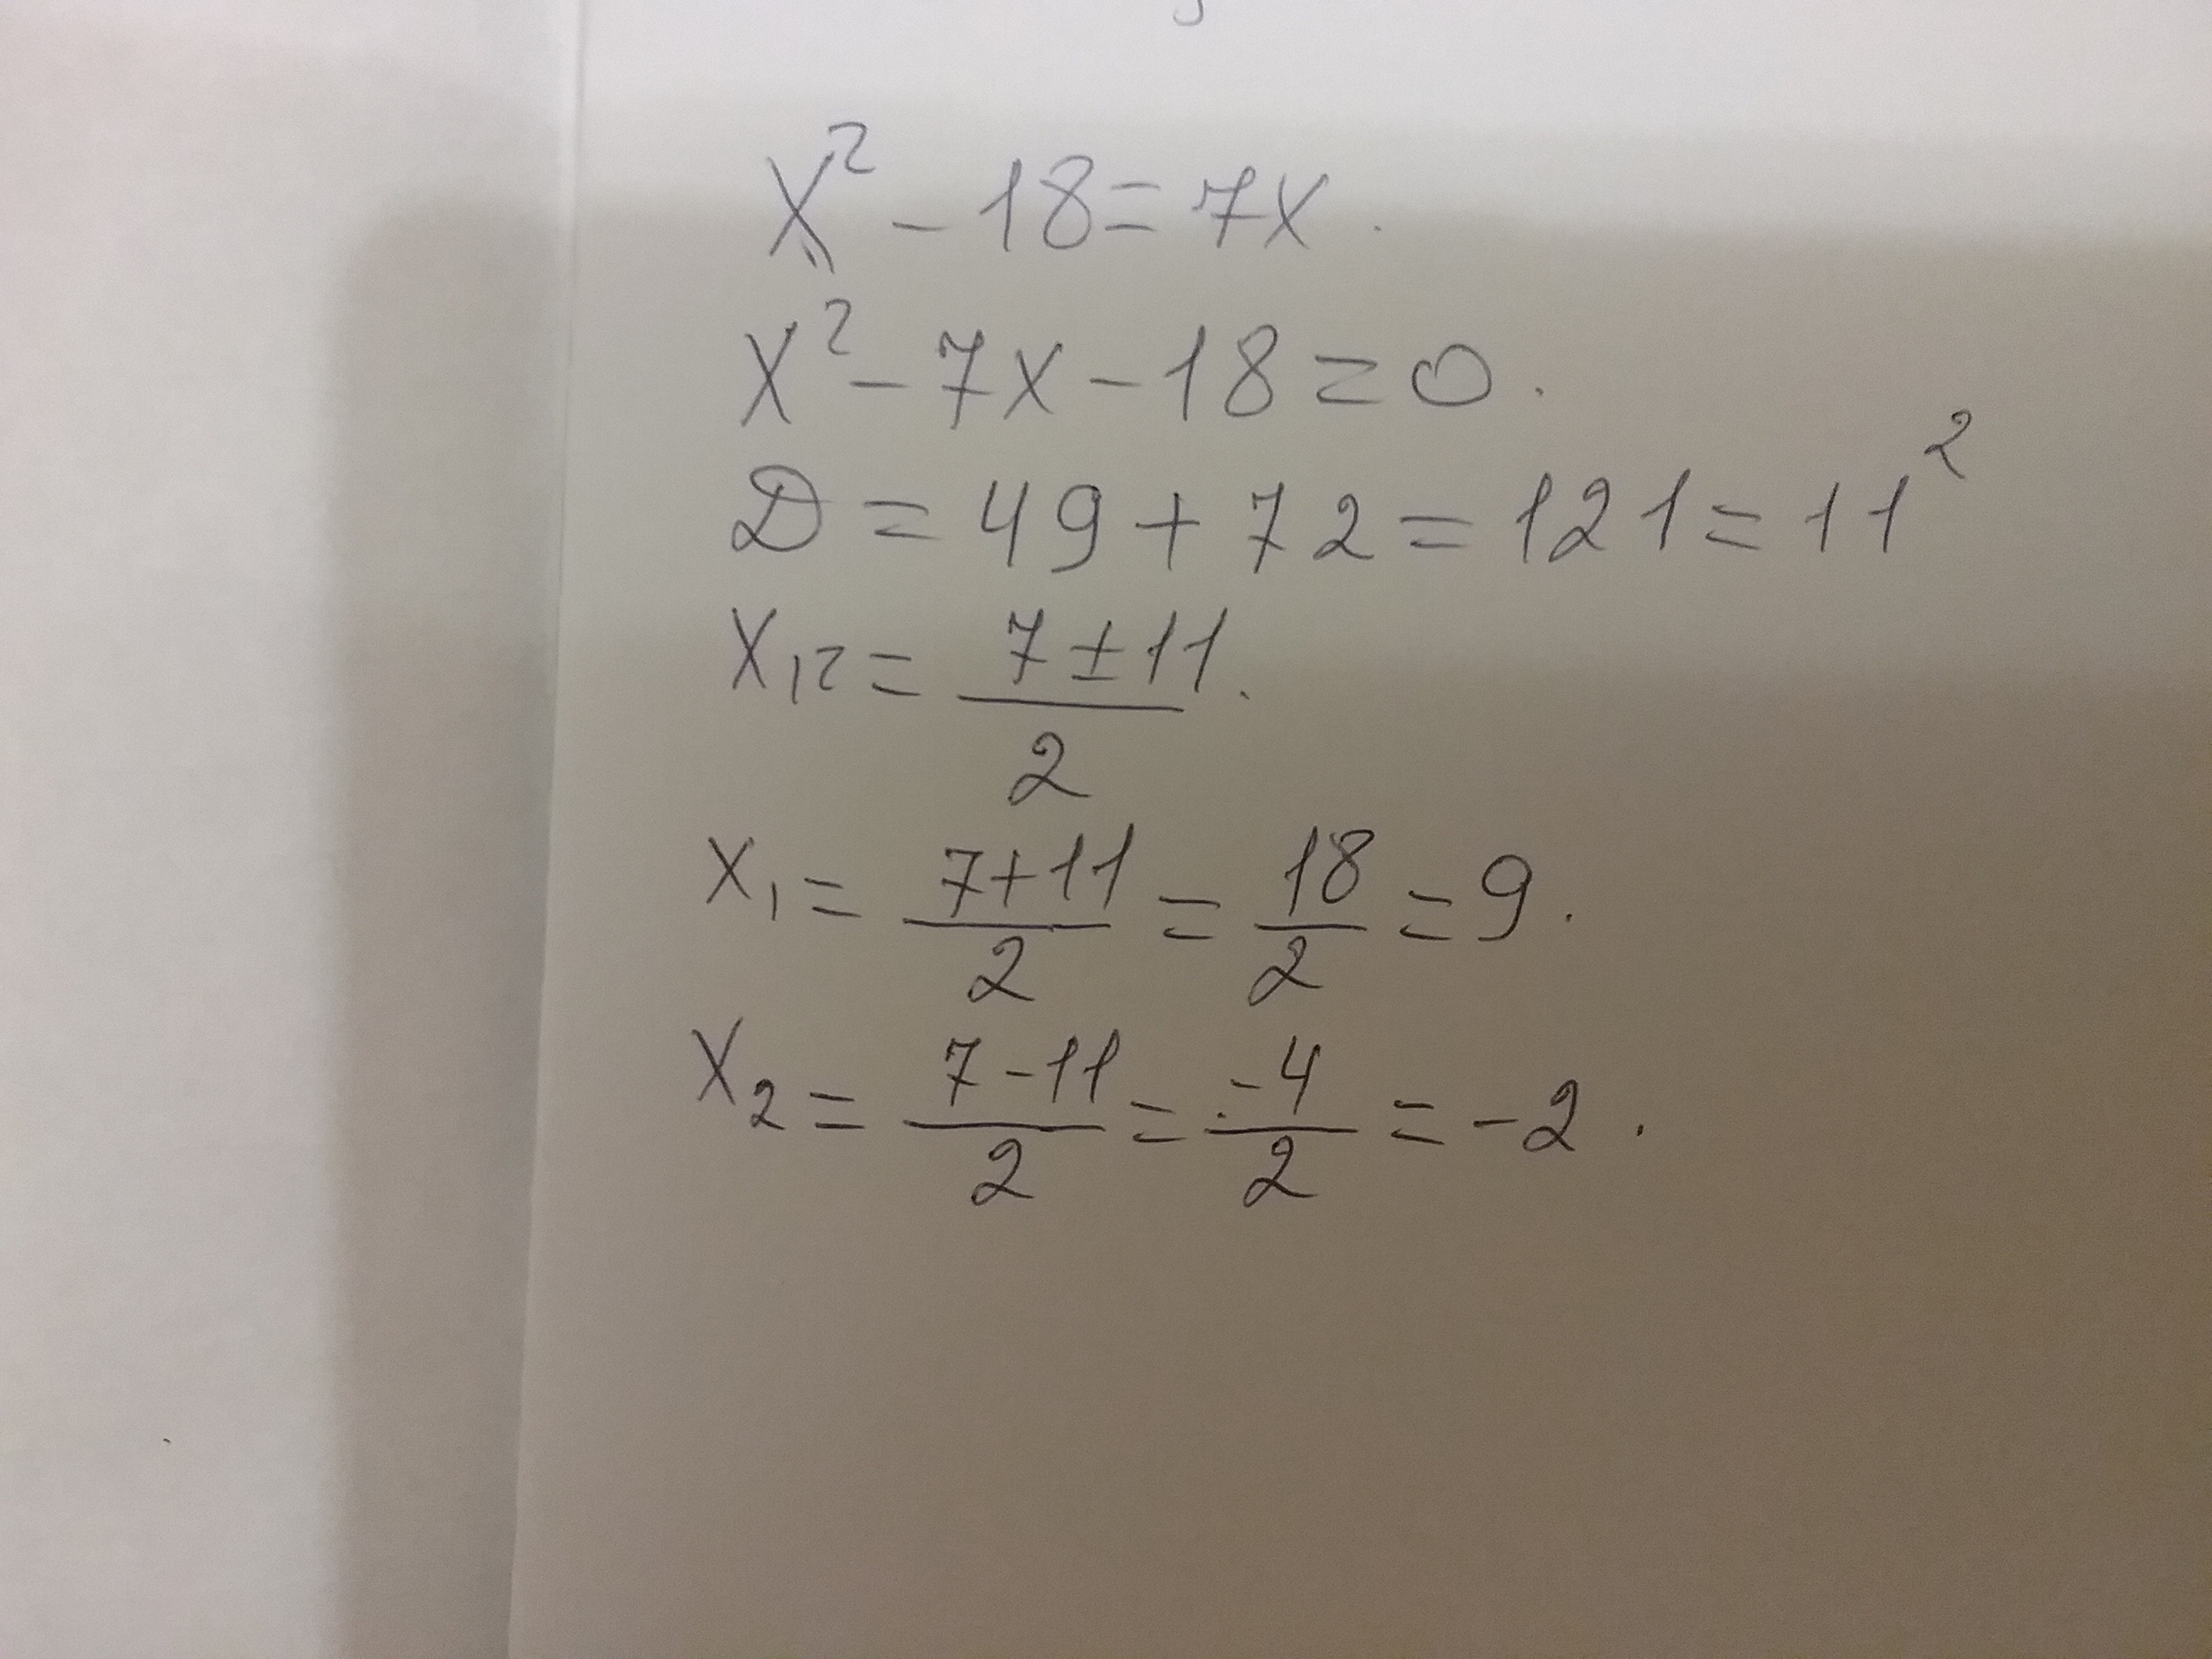 x² - 18 = 7x.
x² - 7x - 18 = 0.
D = 49 + 72 = 121 = 11²
x₁₂ = (7 ± 11)/2.
x₁ = (7+11)/2 = 18/2 = 9.
x₂ = (7-11)/2 = -4/2 = -2.